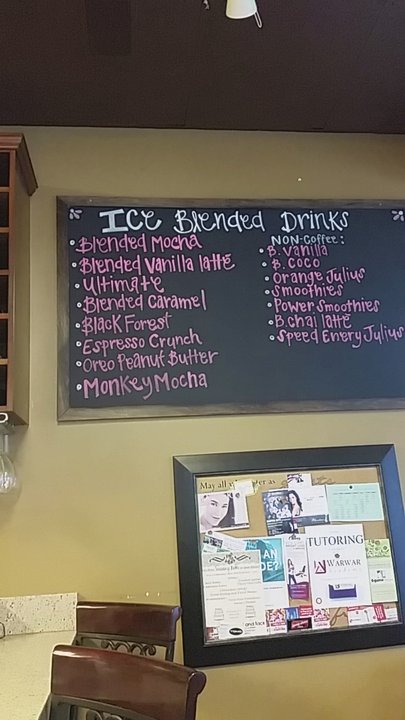 Ice Blended Drinks
Blended Mocha
Blended Vanilla latte
Ultimate
Blended Caramel
Black Forest
Espresso Crunch
Oreo Peanut Butter
Monkey Mocha
NON-Coffee:
B. Vanilla
B. Coco
Orange Julius
Smoothies
Power Smoothies
B. chai latte
Speed Enery Julius
May all
as
TUTORING
WARWAR